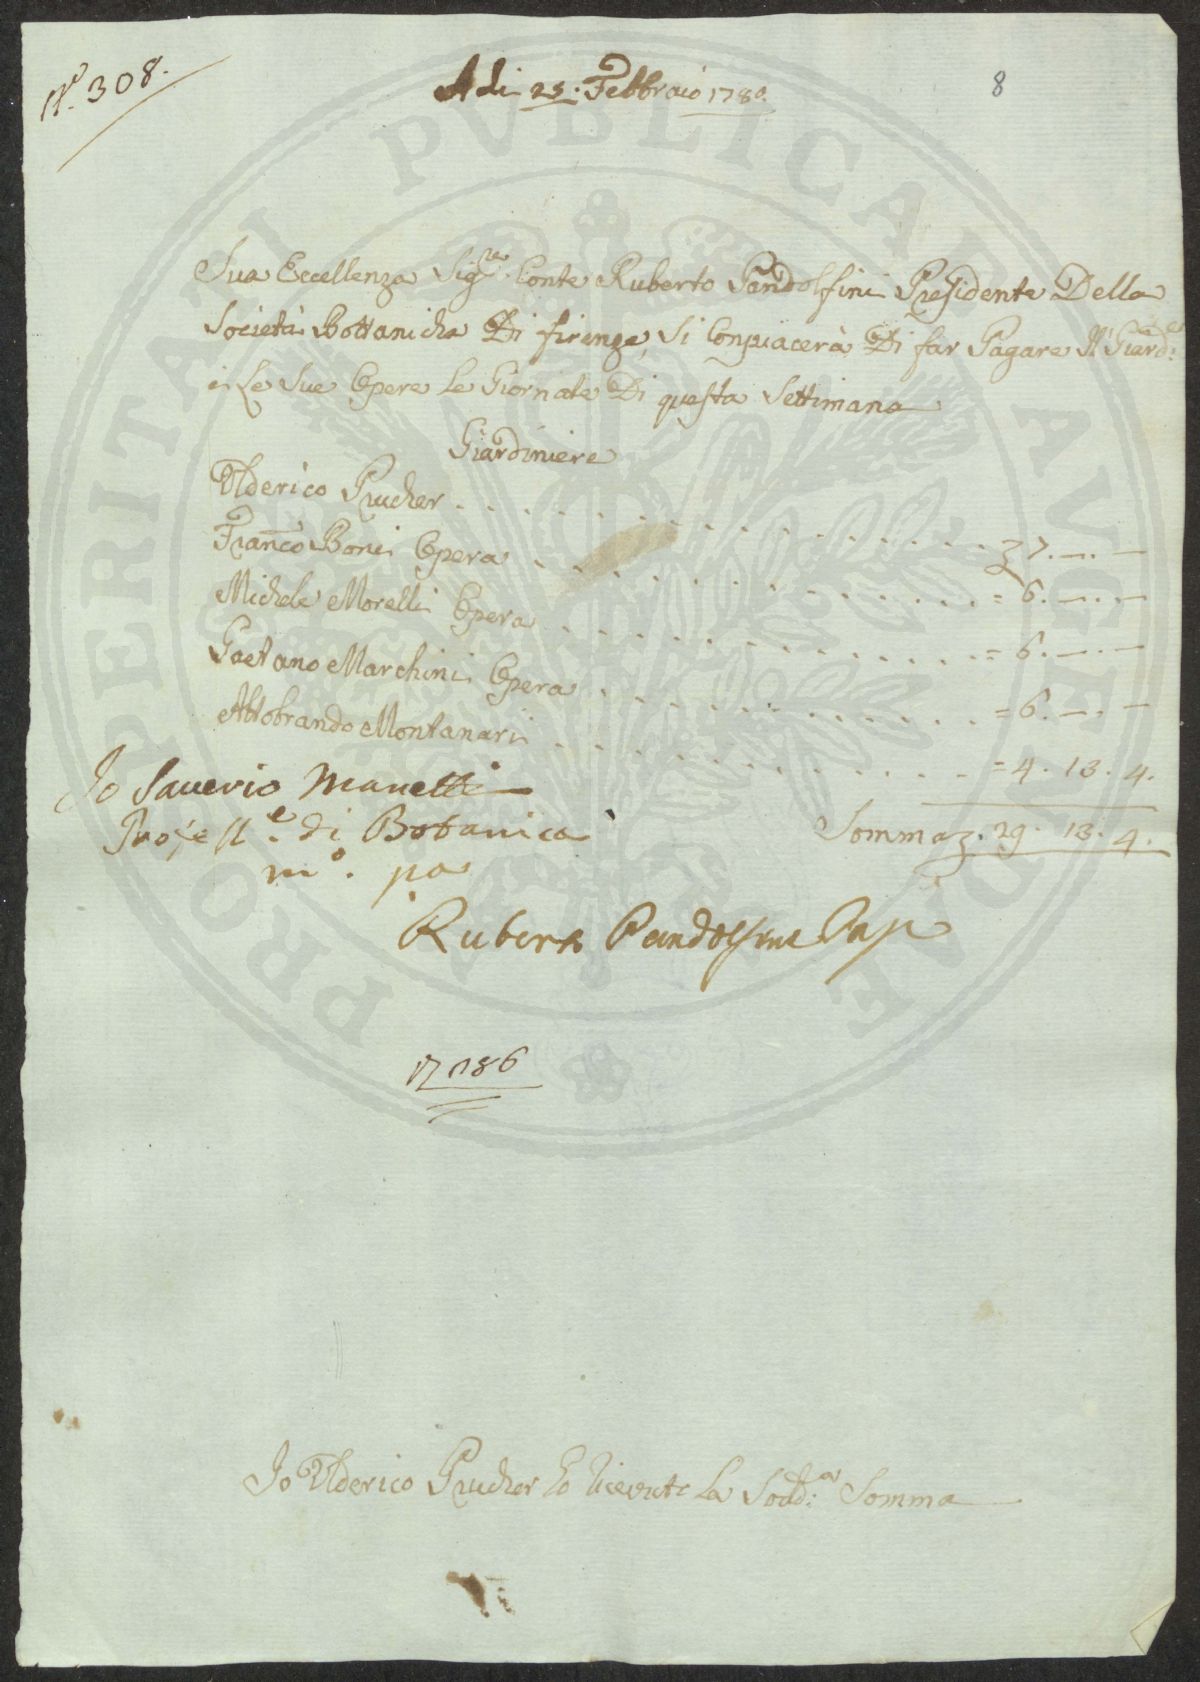 N.o 308.
Adi 25. Febbraio 1780.
8
Sua Eccellenza Sig.re Conte Ruberto Pandolfini Presidente Della
Società Bottanicha Di firenze, Si Conpiacerà Di far Pagare Il Giard.e
e Le Sue Opere Le Giornate Di questa Settimana
Giardiniere
Ulderico Prucher . . . . . . . . . . . . . . . . 7. —. —
Franco Boni Opera . . . . . . . . . . . . . . = 6. —. —
Michele Morelli Opera . . . . . . . . . . . . = 6. —. —
Gaetano Marchini Opera . . . . . . . . . . . = 6. —. —
Altobrando Montanari . . . . . . . . . . . . = 4. 13. 4.
Io Saverio Manetti
Profess.e di Botanica
m.o pa
Somma 29. 13. 4.
Ruberto Pandolfini
186
Io Ulderico Prucher ho Ricevuto La Sodd.a Somma
PRO PERITATI PVBLICAE AVGENDAE